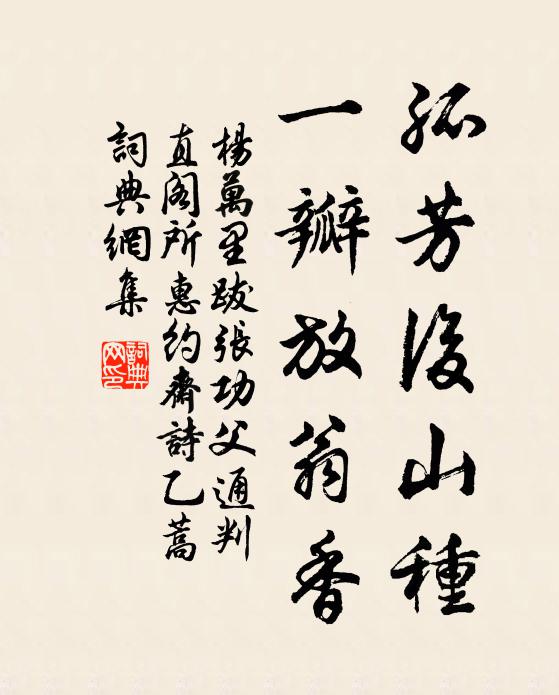 孤芳後山種
一瓣放翁香
楊萬里跋張功父通判
直閣所惠約齋詩乙藁
詞典網集
詞典
网印